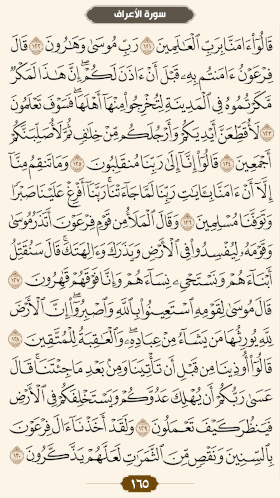 سورة الأعراف
قَالُوٓا۟ ءَامَنَّا بِرَبِّ ٱلْعَٰلَمِينَ ١٢١ رَبِّ مُوسَىٰ وَهَٰرُونَ ١٢٢ قَالَ
فِرْعَوْنُ ءَامَنتُم بِهِۦ قَبْلَ أَنْ ءَاذَنَ لَكُمْ ۖ إِنَّ هَٰذَا لَمَكْرٌ
مَّكَرْتُمُوهُ فِى ٱلْمَدِينَةِ لِتُخْرِجُوا۟ مِنْهَآ أَهْلَهَا ۖ فَسَوْفَ تَعْلَمُونَ
١٢٣ لَأُقَطِّعَنَّ أَيْدِيَكُمْ وَأَرْجُلَكُم مِّنْ خِلَٰفٍ ثُمَّ لَأُصَلِّبَنَّكُمْ
أَجْمَعِينَ ١٢٤ قَالُوٓا۟ إِنَّآ إِلَىٰ رَبِّنَا مُنقَلِبُونَ ١٢٥ وَمَا تَنقِمُ مِنَّآ
إِلَّآ أَنْ ءَامَنَّا بِـَٔايَٰتِ رَبِّنَا لَمَّا جَآءَتْنَا ۚ رَبَّنَآ أَفْرِغْ عَلَيْنَا صَبْرًا
وَتَوَفَّنَا مُسْلِمِينَ ١٢٦ وَقَالَ ٱلْمَلَأُ مِن قَوْمِ فِرْعَوْنَ أَتَذَرُ مُوسَىٰ
وَقَوْمَهُۥ لِيُفْسِدُوا۟ فِى ٱلْأَرْضِ وَيَذَرَكَ وَءَالِهَتَكَ ۚ قَالَ سَنُقَتِّلُ
أَبْنَآءَهُمْ وَنَسْتَحْىِۦ نِسَآءَهُمْ وَإِنَّا فَوْقَهُمْ قَٰهِرُونَ ١٢٧
قَالَ مُوسَىٰ لِقَوْمِهِ ٱسْتَعِينُوا۟ بِٱللَّهِ وَٱصْبِرُوٓا۟ ۖ إِنَّ ٱلْأَرْضَ
لِلَّهِ يُورِثُهَا مَن يَشَآءُ مِنْ عِبَادِهِۦ ۖ وَٱلْعَٰقِبَةُ لِلْمُتَّقِينَ ١٢٨
قَالُوٓا۟ أُوذِينَا مِن قَبْلِ أَن تَأْتِيَنَا وَمِنۢ بَعْدِ مَا جِئْتَنَا ۚ قَالَ
عَسَىٰ رَبُّكُمْ أَن يُهْلِكَ عَدُوَّكُمْ وَيَسْتَخْلِفَكُمْ فِى ٱلْأَرْضِ
فَيَنظُرَ كَيْفَ تَعْمَلُونَ ١٢٩ وَلَقَدْ أَخَذْنَآ ءَالَ فِرْعَوْنَ
بِٱلسِّنِينَ وَنَقْصٍ مِّنَ ٱلثَّمَرَٰتِ لَعَلَّهُمْ يَذَّكَّرُونَ ١٣٠
١٦٥